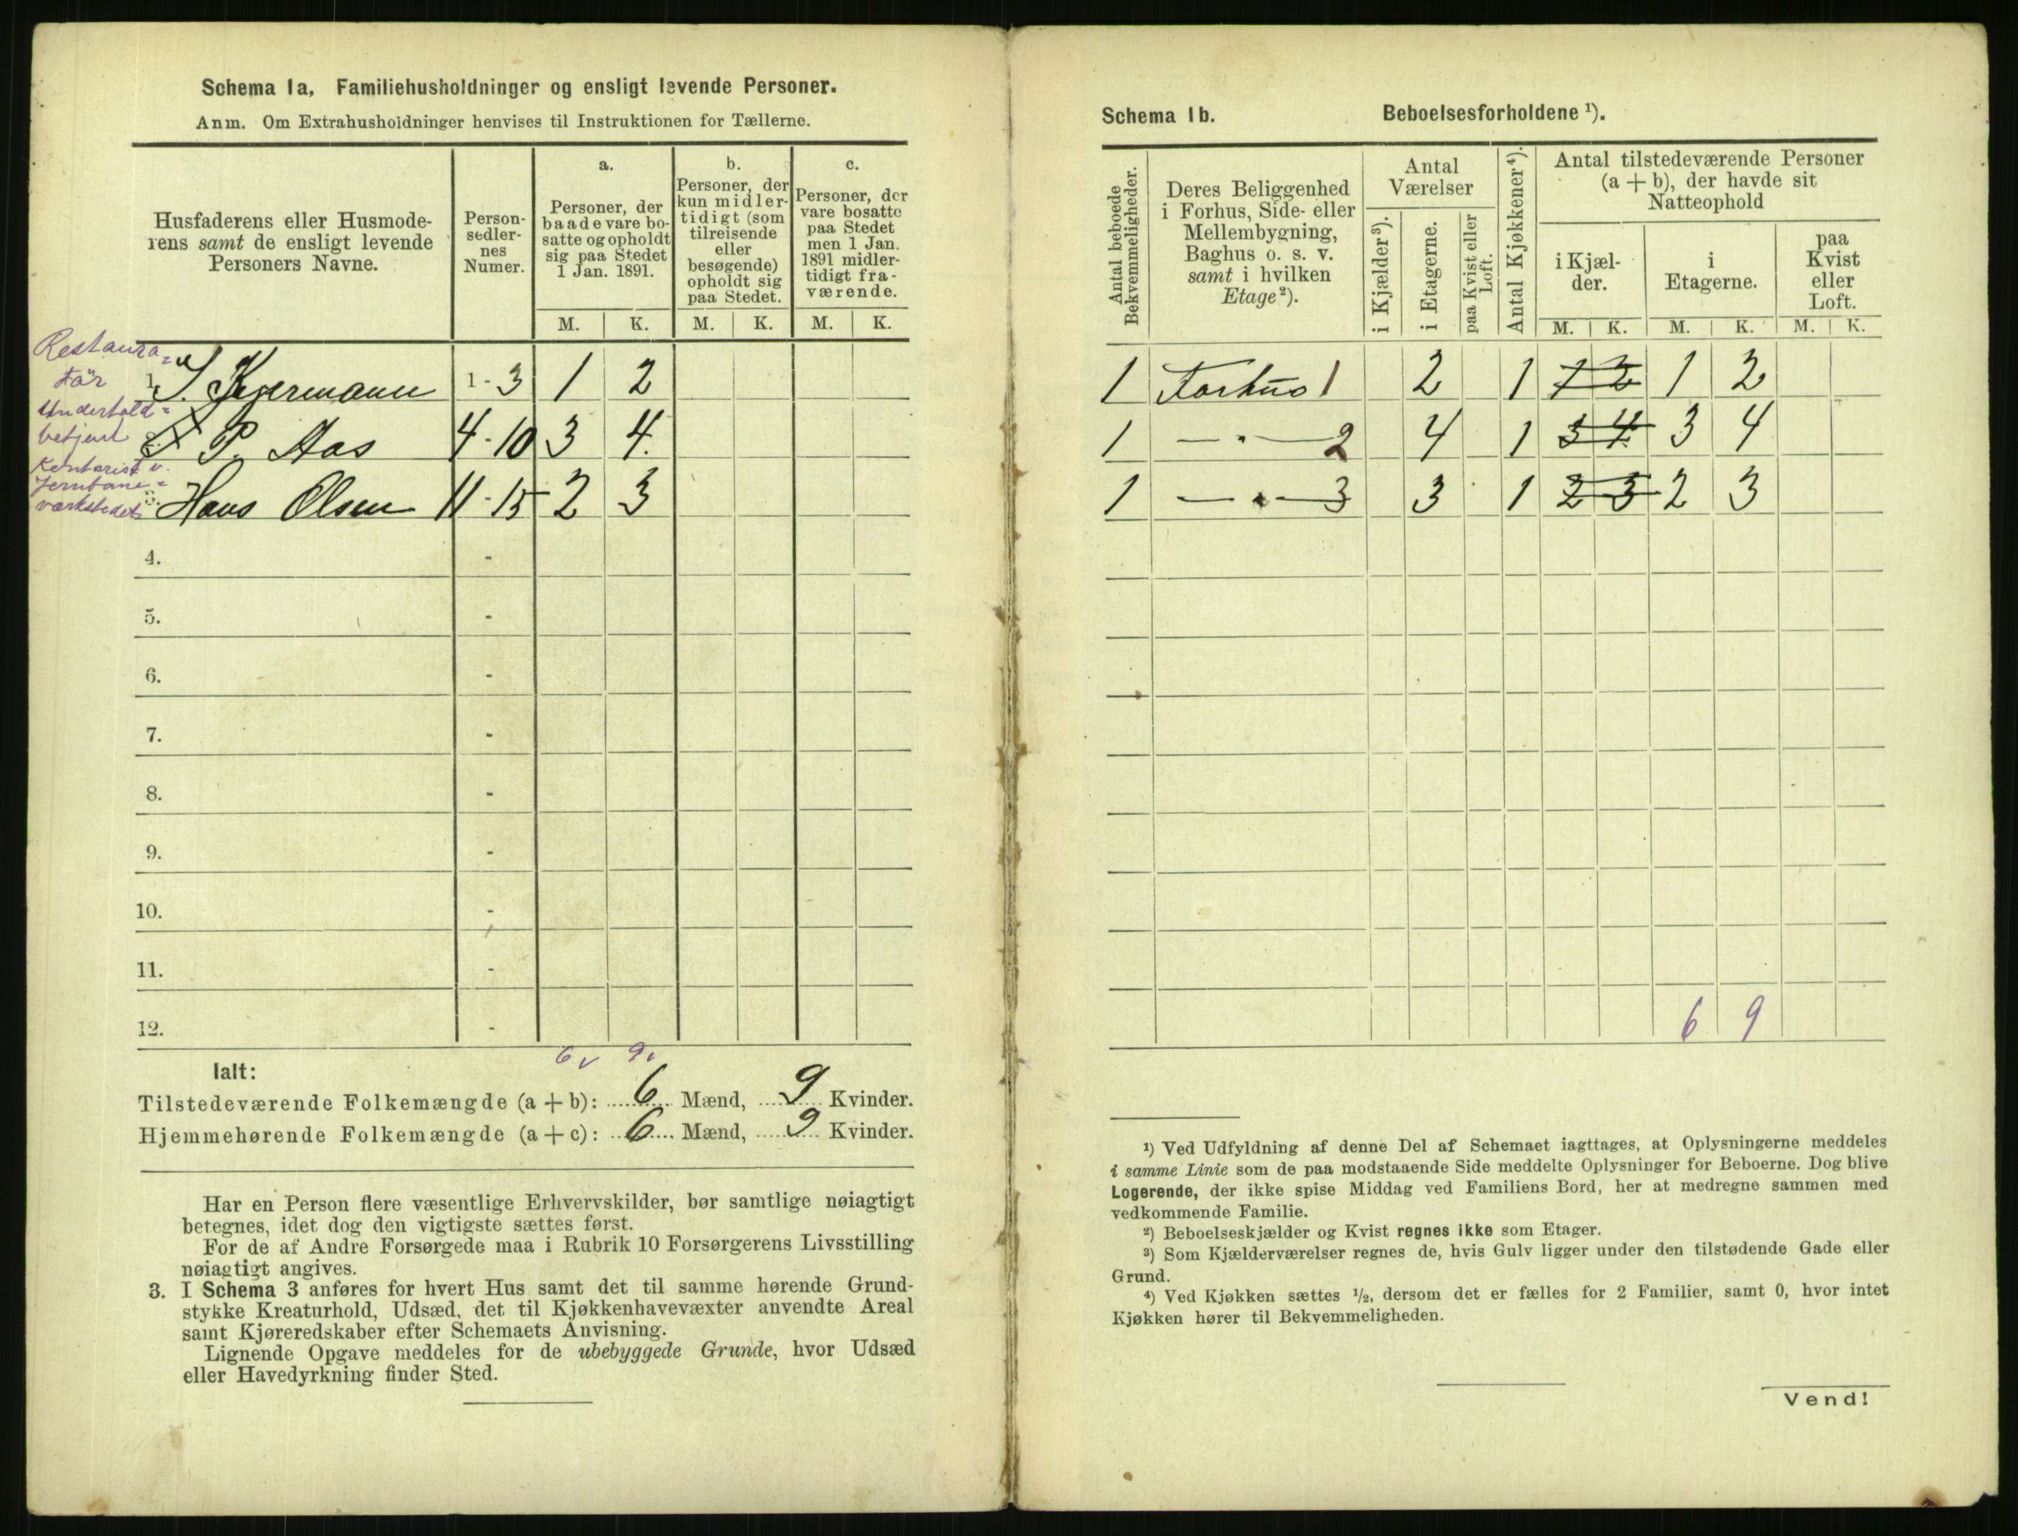 Schema 1a. Familiehusholdninger og ensligt levende Personer.
Anm. Om Extrahusholdninger henvises til Instruktionen for Tællerne.
Husfaderens eller Husmode-
rens samt de ensligt levende
Personers Navne.
Person-
sedler-
nes
Numer.
a.
Personer, der
baade vare bo-
satte og opholdt
sig paa Stedet
1 Jan. 1891.
b.
Personer, der
kun midler-
tidigt (som
tilreisende
eller
besøgende)
opholdt sig
paa Stedet.
c.
Personer, der
vare bosatte
paa Stedet
men 1 Jan.
1891 midler-
tidigt fra-
værende.
M. K. M. K. M. K.
Restaura-
tör
1. 1 - 3 1 2
Underhold-
betjent
P. Aas 4 - 10 3 4
Kontorist v.
Jernbane-
værkstedet
3. Hans Olsen 11 - 15 2 3
4. -
5. -
6. -
7. -
8. -
9. -
10. -
11. -
12. -
6 v 9 v
Ialt:
Tilstedeværende Folkemængde (a + b): 6 Mænd, 9 Kvinder.
Hjemmehørende Folkemængde (a + c): 6 Mænd, 9 Kvinder.
Har en Person flere væsentlige Erhvervskilder, bør samtlige nøiagtigt
betegnes, idet dog den vigtigste sættes først.
For de af Andre Forsørgede maa i Rubrik 10 Forsørgerens Livsstilling
nøiagtigt angives.
3. I Schema 3 anføres for hvert Hus samt det til samme hørende Grund-
stykke Kreaturhold, Udsæd, det til Kjøkkenhavevæxter anvendte Areal
samt Kjøreredskaber efter Schemaets Anvisning.
Lignende Opgave meddeles for de ubebyggede Grunde, hvor Udsæd
eller Havedyrkning finder Sted.
Schema 1b. Beboelsesforholdene ¹).
Antal beboede
Bekvemmeligheder.
Deres Beliggenhed
i Forhus, Side- eller
Mellembygning,
Baghus o. s. v.
samt i hvilken
Etage²).
Antal
Værelser
i Kjælder³).
i Etagerne.
paa Kvist eller
Loft.
Antal Kjøkkener⁴).
Antal tilstedeværende Personer
(a + b), der havde sit
Natteophold
i Kjæl-
der.
i
Etagerne.
paa
Kvist
eller
Loft.
M. K. M. K. M. K.
1 Forhus 1 2 1 1 2 1 2
1 — " — 2 4 1 3 4 3 4
1 — " — 3 3 1 2 3 2 3
6 9
¹) Ved Udfyldning af denne Del af Schemaet iagttages, at Oplysningerne meddeles
i samme Linie som de paa modstaaende Side meddelte Oplysninger for Beboerne. Dog blive
Logerende, der ikke spise Middag ved Familiens Bord, her at medregne sammen med
vedkommende Familie.
²) Beboelseskjælder og Kvist regnes ikke som Etager.
³) Som Kjælderværelser regnes de, hvis Gulv ligger under den tilstødende Gade eller
Grund.
⁴) Ved Kjøkken sættes ½, dersom det er fælles for 2 Familier, samt 0, hvor intet
Kjøkken hører til Bekvemmeligheden.
Vend!